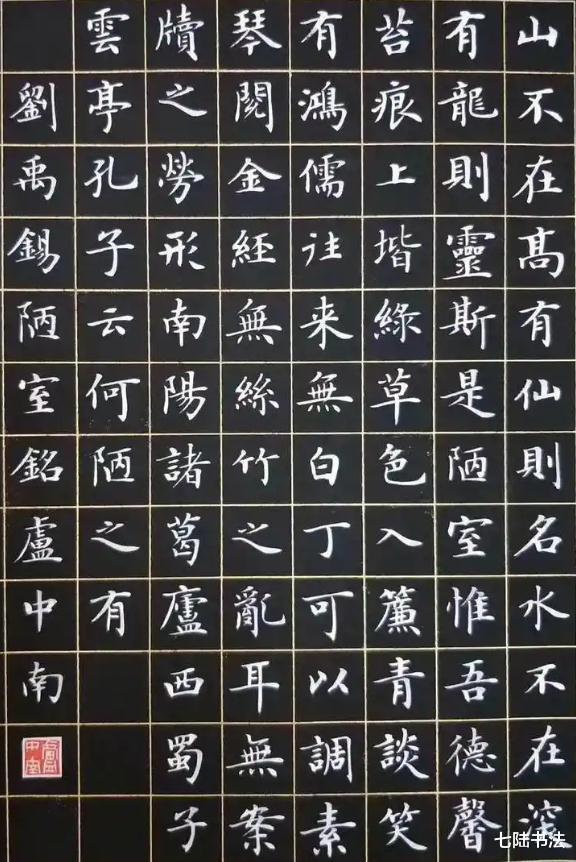 山不在髙有仙則名水不在深
有龍則靈斯是陋室惟吾德馨
苔痕上堦綠草色入簾青談笑
有鴻儒往来無白丁可以調素
琴閱金經無絲竹之亂耳無案
牘之勞形南陽諸葛廬西蜀子
雲亭孔子云何陋之有
劉禹錫陋室銘盧中南
盧中南
七陆书法